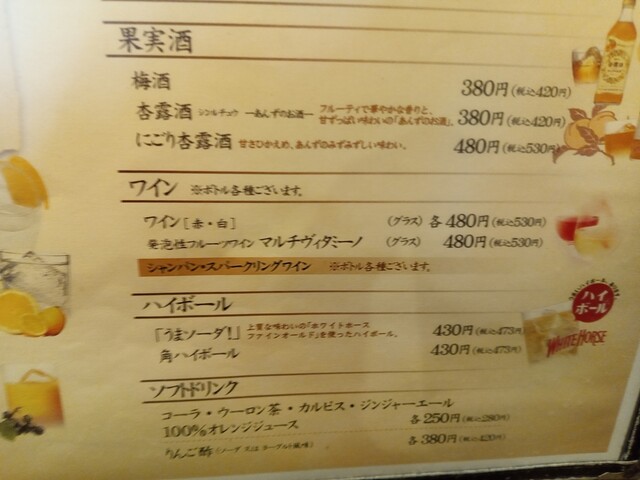 果実酒
梅酒 380円(税込420円)
杏露酒 シンルチュウ ―あんずのお酒― フルーティで華やかな香りと、
甘ずっぱい味わいの「あんずのお酒」。 380円(税込420円)
にごり杏露酒 甘さひかえめ、あんずのみずみずしい味わい。 480円(税込530円)
ワイン ※ボトル各種ございます。
ワイン[赤・白] (グラス) 各480円(税込530円)
発泡性フルーツワイン マルチヴィタミーノ (グラス) 480円(税込530円)
シャンパン・スパークリングワイン ※ボトル各種ございます。
ハイボール
「うまソーダ!」 上質な味わいの「ホワイトホース
ファインオールド」を使ったハイボール。 430円(税込473円)
角ハイボール 430円(税込473円)
ハイ
ボール
WHITE HORSE
ソフトドリンク
コーラ・ウーロン茶・カルピス・ジンジャーエール
100%オレンジジュース 各250円(税込280円)
りんご酢(ソーダ又はヨーグルト風味) 各380円(税込420円)